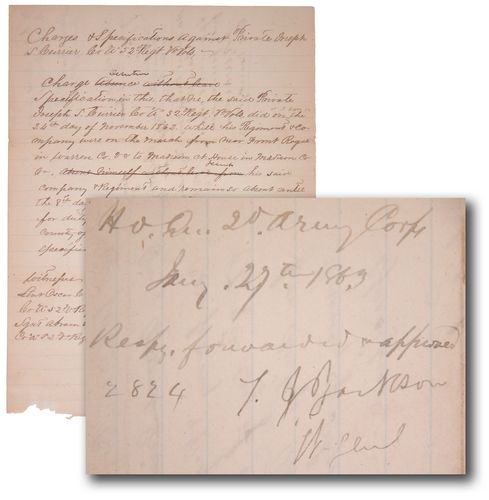 Charges & Specifications against Private Joseph
S. Currier Co. A 52d Regt Va Vols.
Desertion
Charge Absence without leave
Specification in this, that he, the said Private
Joseph S. Currier Co A 52d Regt. Va Vols, did on the
24th day of November 1862, while his Regiment & Com-
pany were on the march from near Front Royal
in Warren Co Va to Madison Ct. House in Madison Co
Va, absent himself without leave from his said
desert
company & Regiment and remain so absent until
the
day
for duty
county of
Specific
Witnesses
Lieut
Co A 52 Va R
Sgt Abram
Co A 52 V Reg
Hd. Qrs. 2d. Army Corps
Jany. 27th 1863
Respy. forwarded & approved
2824 T. J. Jackson
Lt. Genl